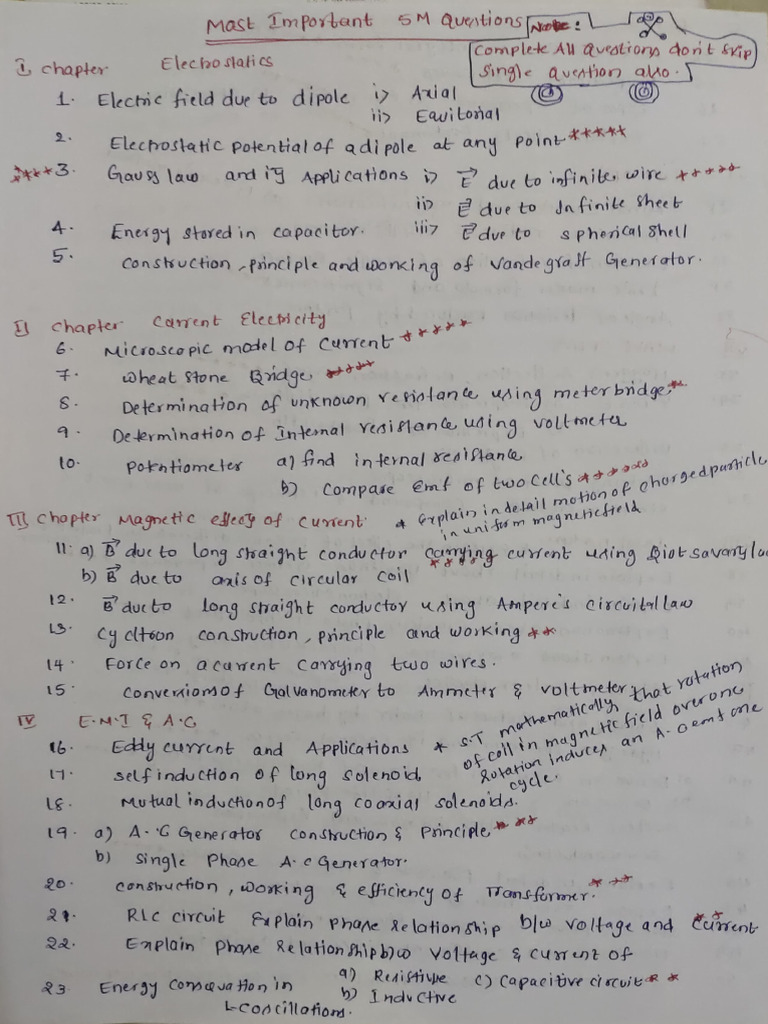 Mast Important 5M Questions Note:
Complete All Questions don't skip
single question also.
I chapter Electrostatics
1. Electric field due to dipole i> Axial
ii> Equitorial
2. Electrostatic potential of a dipole at any point *****
**** 3. Gauss law and its Applications i> E due to infinite wire *****
ii> E due to Infinite sheet
4. Energy stored in capacitor. iii> E due to spherical shell
5. construction, principle and working of Vandegraft Generator.
II chapter Current Electricity
6. Microscopic model of Current *****
7. Wheat stone Bridge ****
8. Determination of unknown resistance using meterbridge. *
9. Determination of Internal resistance using voltmeter
10. Potentiometer a) find internal resistance
b) compare Emf of two Cell's ******
III Chapter Magnetic effects of Current * Explain in detail motion of charged particle
in uniform magnetic field
****
11. a) B due to long straight conductor carrying current using Biot savarts law
b) B due to axis of circular coil
12. B due to long straight conductor using Ampere's circuital law
13. Cycltron construction, principle and working **
14. Force on a current carrying two wires.
15. conversions of Galvanometer to Ammeter & voltmeter
IV E.M.I & A.C
* S.T mathematically that rotation
of coil in magnetic field over one
rotation induces an A.C emf one
cycle.
16. Eddy current and Applications
17. self induction of long solenoid
18. Mutual induction of long coaxial solenoids.
19. a) A.C Generator construction & Principle ***
b) Single Phase A.c Generator.
20. construction, working & efficiency of Transformer. ***
21. RLC circuit Explain phase relationship b/w voltage and current **
22. Explain Phase Relationship b/w Voltage & current of
a) Resistive c) capacitive circuit **
b) Inductive
23. Energy Consequation in
L-C oscillations.